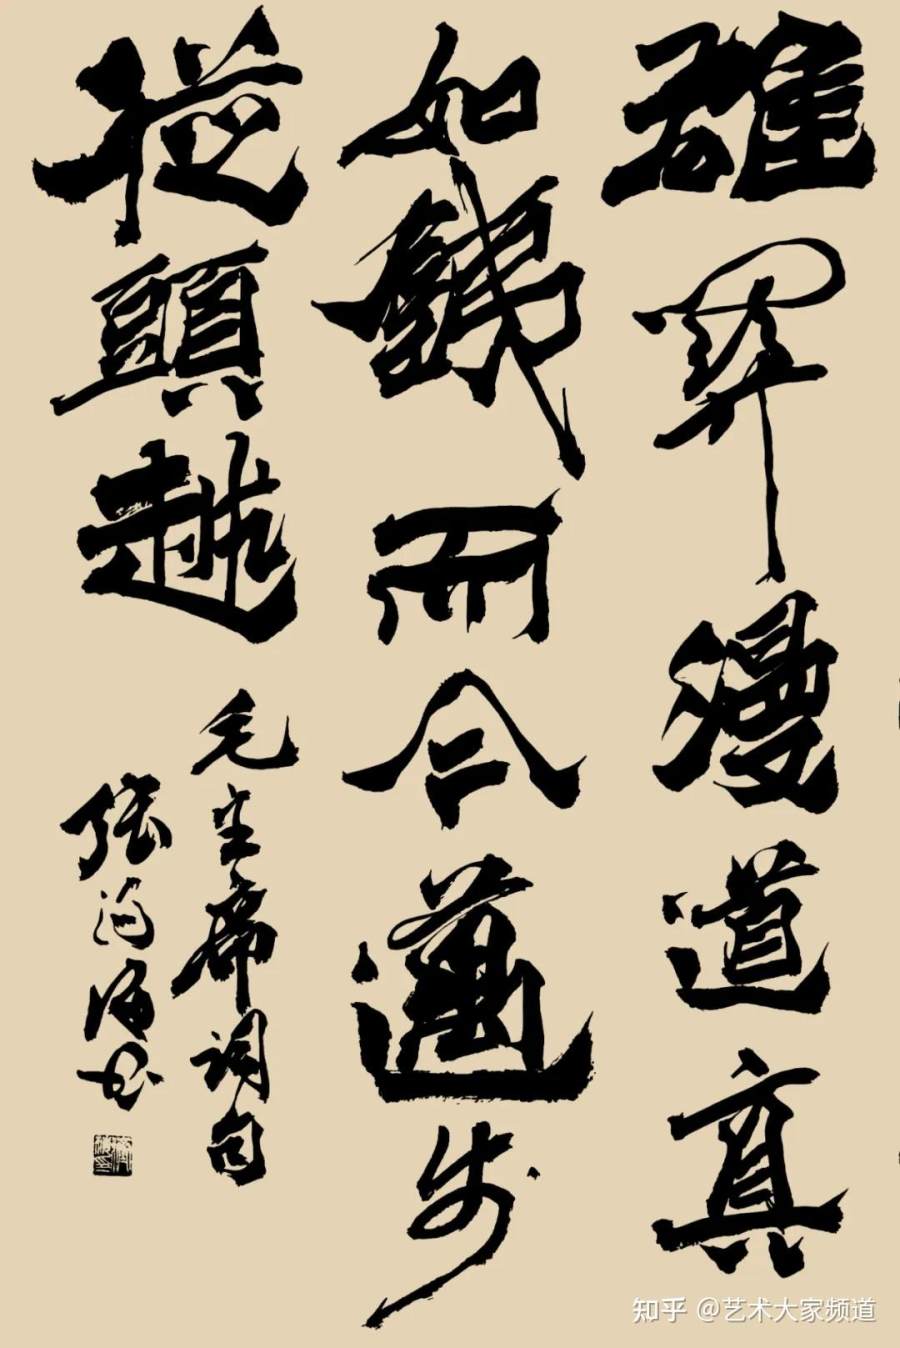 雄關漫道真
如鐵而今邁步
從頭越
毛主席詞句
張海書
知乎 @艺术大家频道